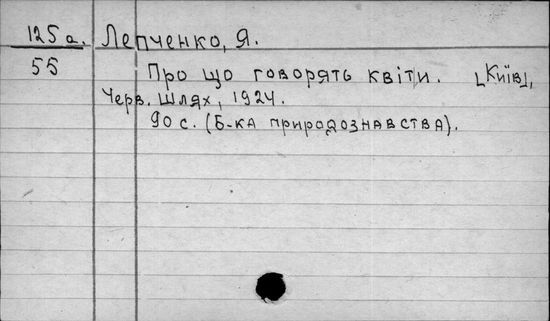 125а. Лепченко, Я.
55 Про що говорять квіти. [Київ],
Черв. Шлях, 1924.
90 с. (Б-ка природознавства).